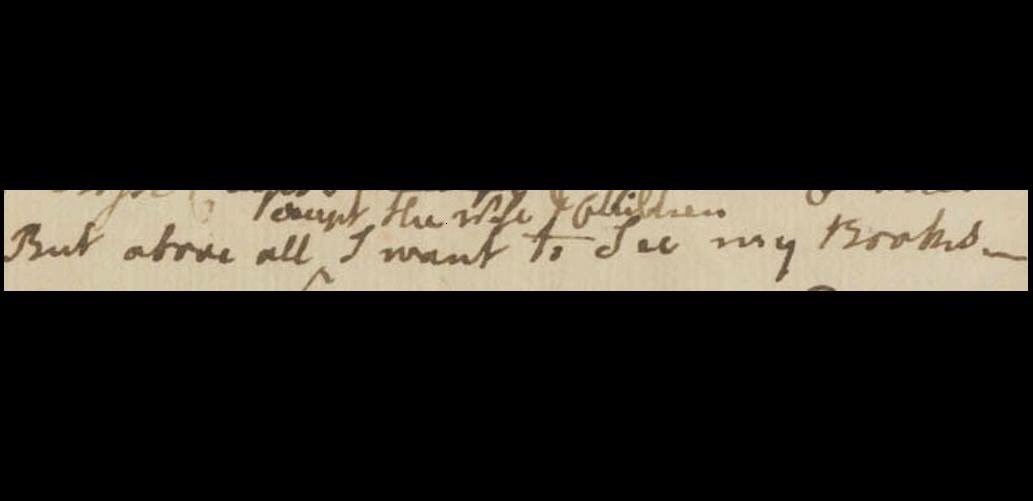 except the Wife & Children
But above all I want to See my Books—